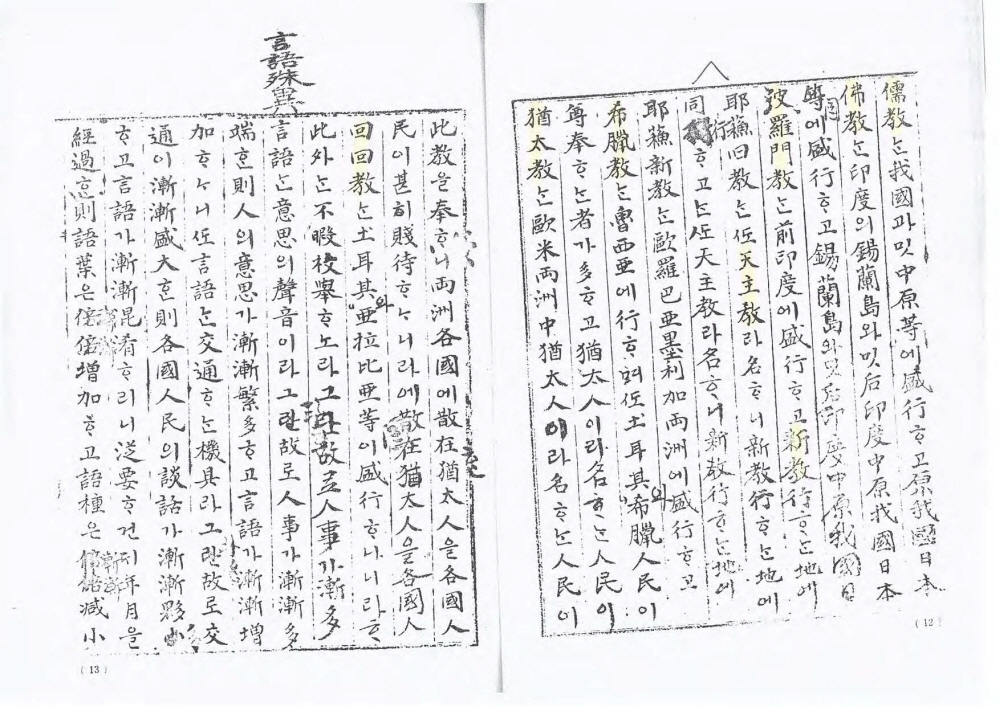 儒教ᄂᆞᆫ我國과밋中原等에盛行ᄒᆞ고原我國日本
佛教ᄂᆞᆫ印度의錫蘭島와밋后印度中原我國日本
等에盛行ᄒᆞ고錫蘭島와밋后印度中原我國日
波羅門教ᄂᆞᆫ前印度에盛行ᄒᆞ고新教行ᄒᆞᄂᆞᆫ地에
耶穌旧教ᄂᆞᆫ任天主教라名ᄒᆞ니新教行ᄒᆞᄂᆞᆫ地에
同行ᄒᆞ고ᄂᆞᆫ任天主教라名ᄒᆞ니新教行ᄒᆞᄂᆞᆫ地에
耶穌新教ᄂᆞᆫ歐羅巴亜墨利加両洲에盛行ᄒᆞ고
希臘教ᄂᆞᆫ魯西亜에行ᄒᆞ며任土耳其와希臘人民이
尊奉ᄒᆞᄂᆞᆫ者가多ᄒᆞ고猶太人이라名ᄒᆞᄂᆞᆫ人民이
猶太教ᄂᆞᆫ歐米両洲中猶太人이라名ᄒᆞᄂᆞᆫ人民이
(12)
言語殊異
此教을奉ᄒᆞ니両洲各國에散在猶太人을各國人
民이甚히賤待ᄒᆞᄂᆞ니라에散在猶太人을各國人
回回教ᄂᆞᆫ土耳其와亜拉比亜等이盛行ᄒᆞ나니라ᄒᆞ
此外ᄂᆞᆫ不暇枚擧ᄒᆞ노라그란故로人事가漸多
言語ᄂᆞᆫ意思의聲音이라그란故로人事가漸漸多
端ᄒᆞ則人의意思가漸漸繁多ᄒᆞ고言語가漸漸增
加ᄒᆞᄂᆞ니任言語ᄂᆞᆫ交通ᄒᆞᄂᆞᆫ機具라그란故로交
通이漸漸盛大ᄒᆞᆫ則各國人民의談話가漸漸夥
ᄒᆞ고言語가漸漸混淆ᄒᆞ리니泛要ᄒᆞ건ᄃᆡ年月을
經過ᄒᆞᆫ則語葉은倍倍增加ᄒᆞ고語種은漸漸减小
(13)